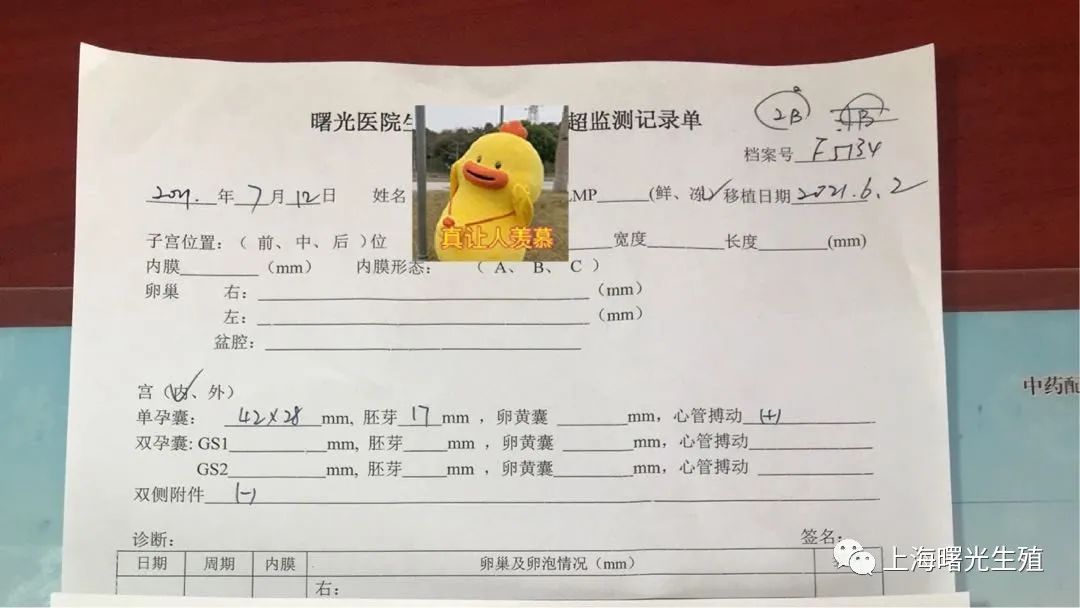 2B 1B
曙光医院生 超监测记录单
档案号 F5734
2021.年7月12日 姓名 LMP______(鲜、冻)✓移植日期2021.6.2
真让人羡慕
子宫位置:( 前、中、后 )位 ______宽度______长度______(mm)
内膜______(mm) 内膜形态: ( A、 B、 C )
卵巢 右:______(mm)
左:______(mm)
盆腔:______
宫(内✓、外)
单孕囊: 42×28 mm, 胚芽 17 mm , 卵黄囊 ______mm, 心管搏动 (+)
双孕囊: GS1______mm, 胚芽____mm , 卵黄囊 ______mm, 心管搏动______
GS2______mm, 胚芽____mm , 卵黄囊______mm, 心管搏动 ______
双侧附件 (-)
诊断: 签名:
日期 周期 内膜 卵巢及卵泡情况(mm)
右:
中药配
上海曙光生殖